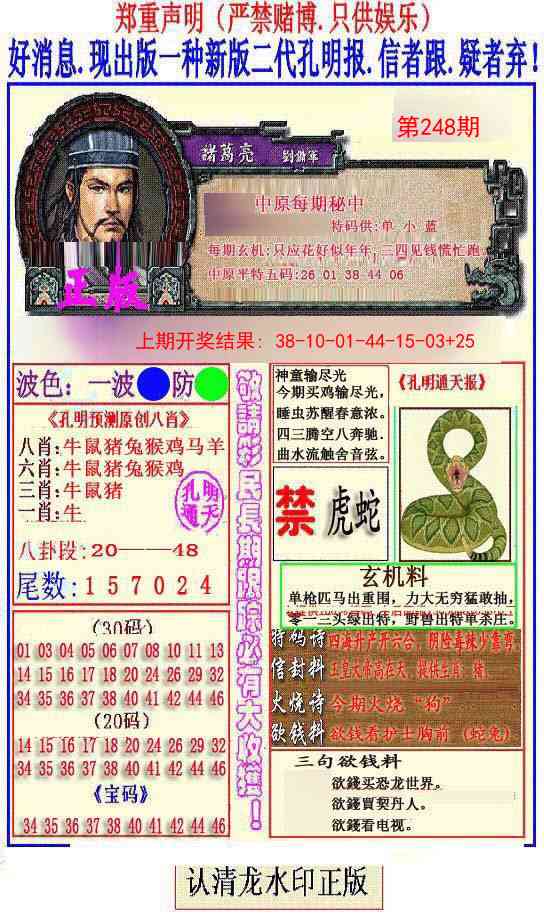 郑重声明（严禁赌博.只供娱乐）
好消息.现出版一种新版二代孔明报.信者跟.疑者弃!
第248期
諸葛亮 劉備軍
中原每期秘中
特码供:单 小 蓝
每期玄机:只应花好似年年,三四见钱慌忙跑
中原平特五码:26 01 38 44 06
正版
上期开奖结果: 38-10-01-44-15-03+25
波色：一波 防
《孔明预测原创八肖》
八肖:牛鼠猪兔猴鸡马羊
六肖:牛鼠猪兔猴鸡
三肖:牛鼠猪
一肖:牛
孔明
通天
八卦段:20——48
尾数:157024
(30码)
01 03 04 05 06 07 08 10 11 13
14 15 16 17 18 20 24 26 29 32
34 35 36 37 38 40 41 42 44 46
(20码)
14 15 16 17 18 20 24 26 29 32
34 35 36 37 38 40 41 42 44 46
《宝码》
34 35 36 37 38 40 41 42 44 46
敬請彩民長期跟踪必有大收獲！
神童输尽光
今期买鸡输尽光,
睡虫苏醒春意浓。
四三腾空八奔驰.
曲水流触舍音弦。
《孔明通天报》
禁 虎蛇
玄机料
单枪匹马出重围, 力大无穷猛敢抽,
零一三头绿出特, 野兽出特单杀庄。
特码诗 四海升产开六合, 阴险毒辣少靠弯
信封料 玉皇大帝高在天, 提供生肖: 猪.
火烧诗 今期火烧“狗”
欲钱料 欲钱看护士胸前（蛇兔）
三句欲钱料
欲錢买恐龙世界。
欲錢買契丹人。
欲錢看电视。
认清龙水印正版